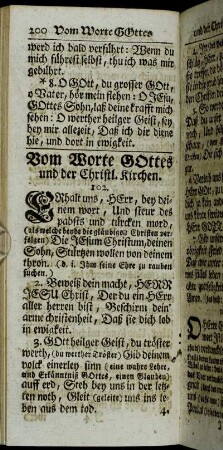 200 Vom Worte GOttes
werd ich bald verführt: Wenn du
mich führest selbst, thu ich was mir
gebührt.
* 8. O GOtt, du grosser GOtt,
o Vater, hör mein flehen: O JEsu,
GOttes Sohn, laß deine krafft mich
sehen: O werther heilger Geist, sey
bey mir allezeit, Daß ich dir diene
hie, und dort in ewigkeit.
Vom Worte GOttes
und der Christl. Kirchen.
102.
ERhalt uns, HErr, bey dei-
nem wort, Und steur des
pabsts und türcken mord,
(als welche beyde die gläubigen Christen ver-
folgen) Die JEsum Christum, deinen
Sohn, Stürtzen wollen von deinem
thron. (d. i. Ihm seine Ehre zu rauben
suchen.)
2. Beweiß dein macht, HERR
JESU Christ, Der du ein HErr
aller herren bist, Beschirm dein'
arme christenheit, Daß sie dich lob
in ewigkeit.
3. GOtt heilger Geist, du tröster
werth, (du werther Tröster) Gib deinem
volck einerley sinn (eine wahre Lehre,
und Erkänntniß GOttes, einen Glauben)
auff erd, Steh bey uns in der letz-
ten noth, Gleit (geleite) uns ins le-
ben aus dem tod.
4.